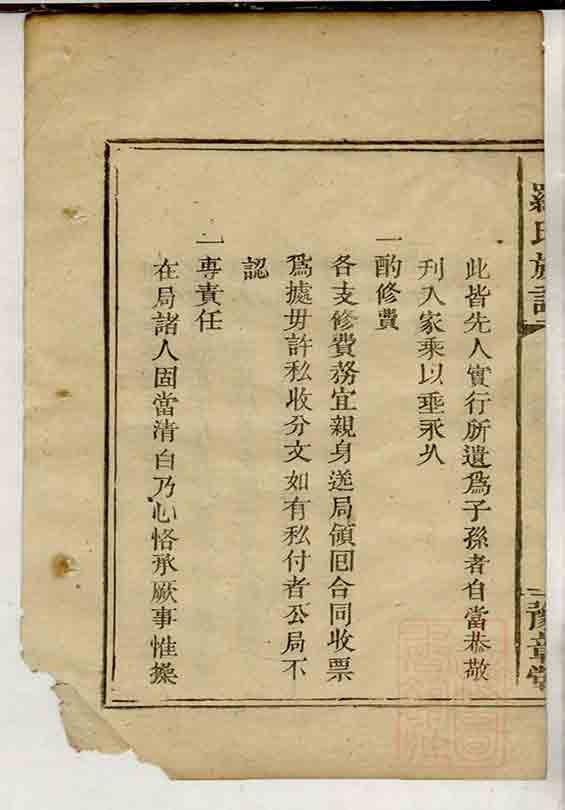 羅氏族譜
豫章堂
此皆先人實行所遺爲子孫者自當恭敬
刋入家乘以垂永久
一酌修費
各支修費務宜親身送局領囘合同收票
爲據毋許私收分文如有私付者公局不
認
一專責任
在局諸人固當清白乃心恪承厥事惟操